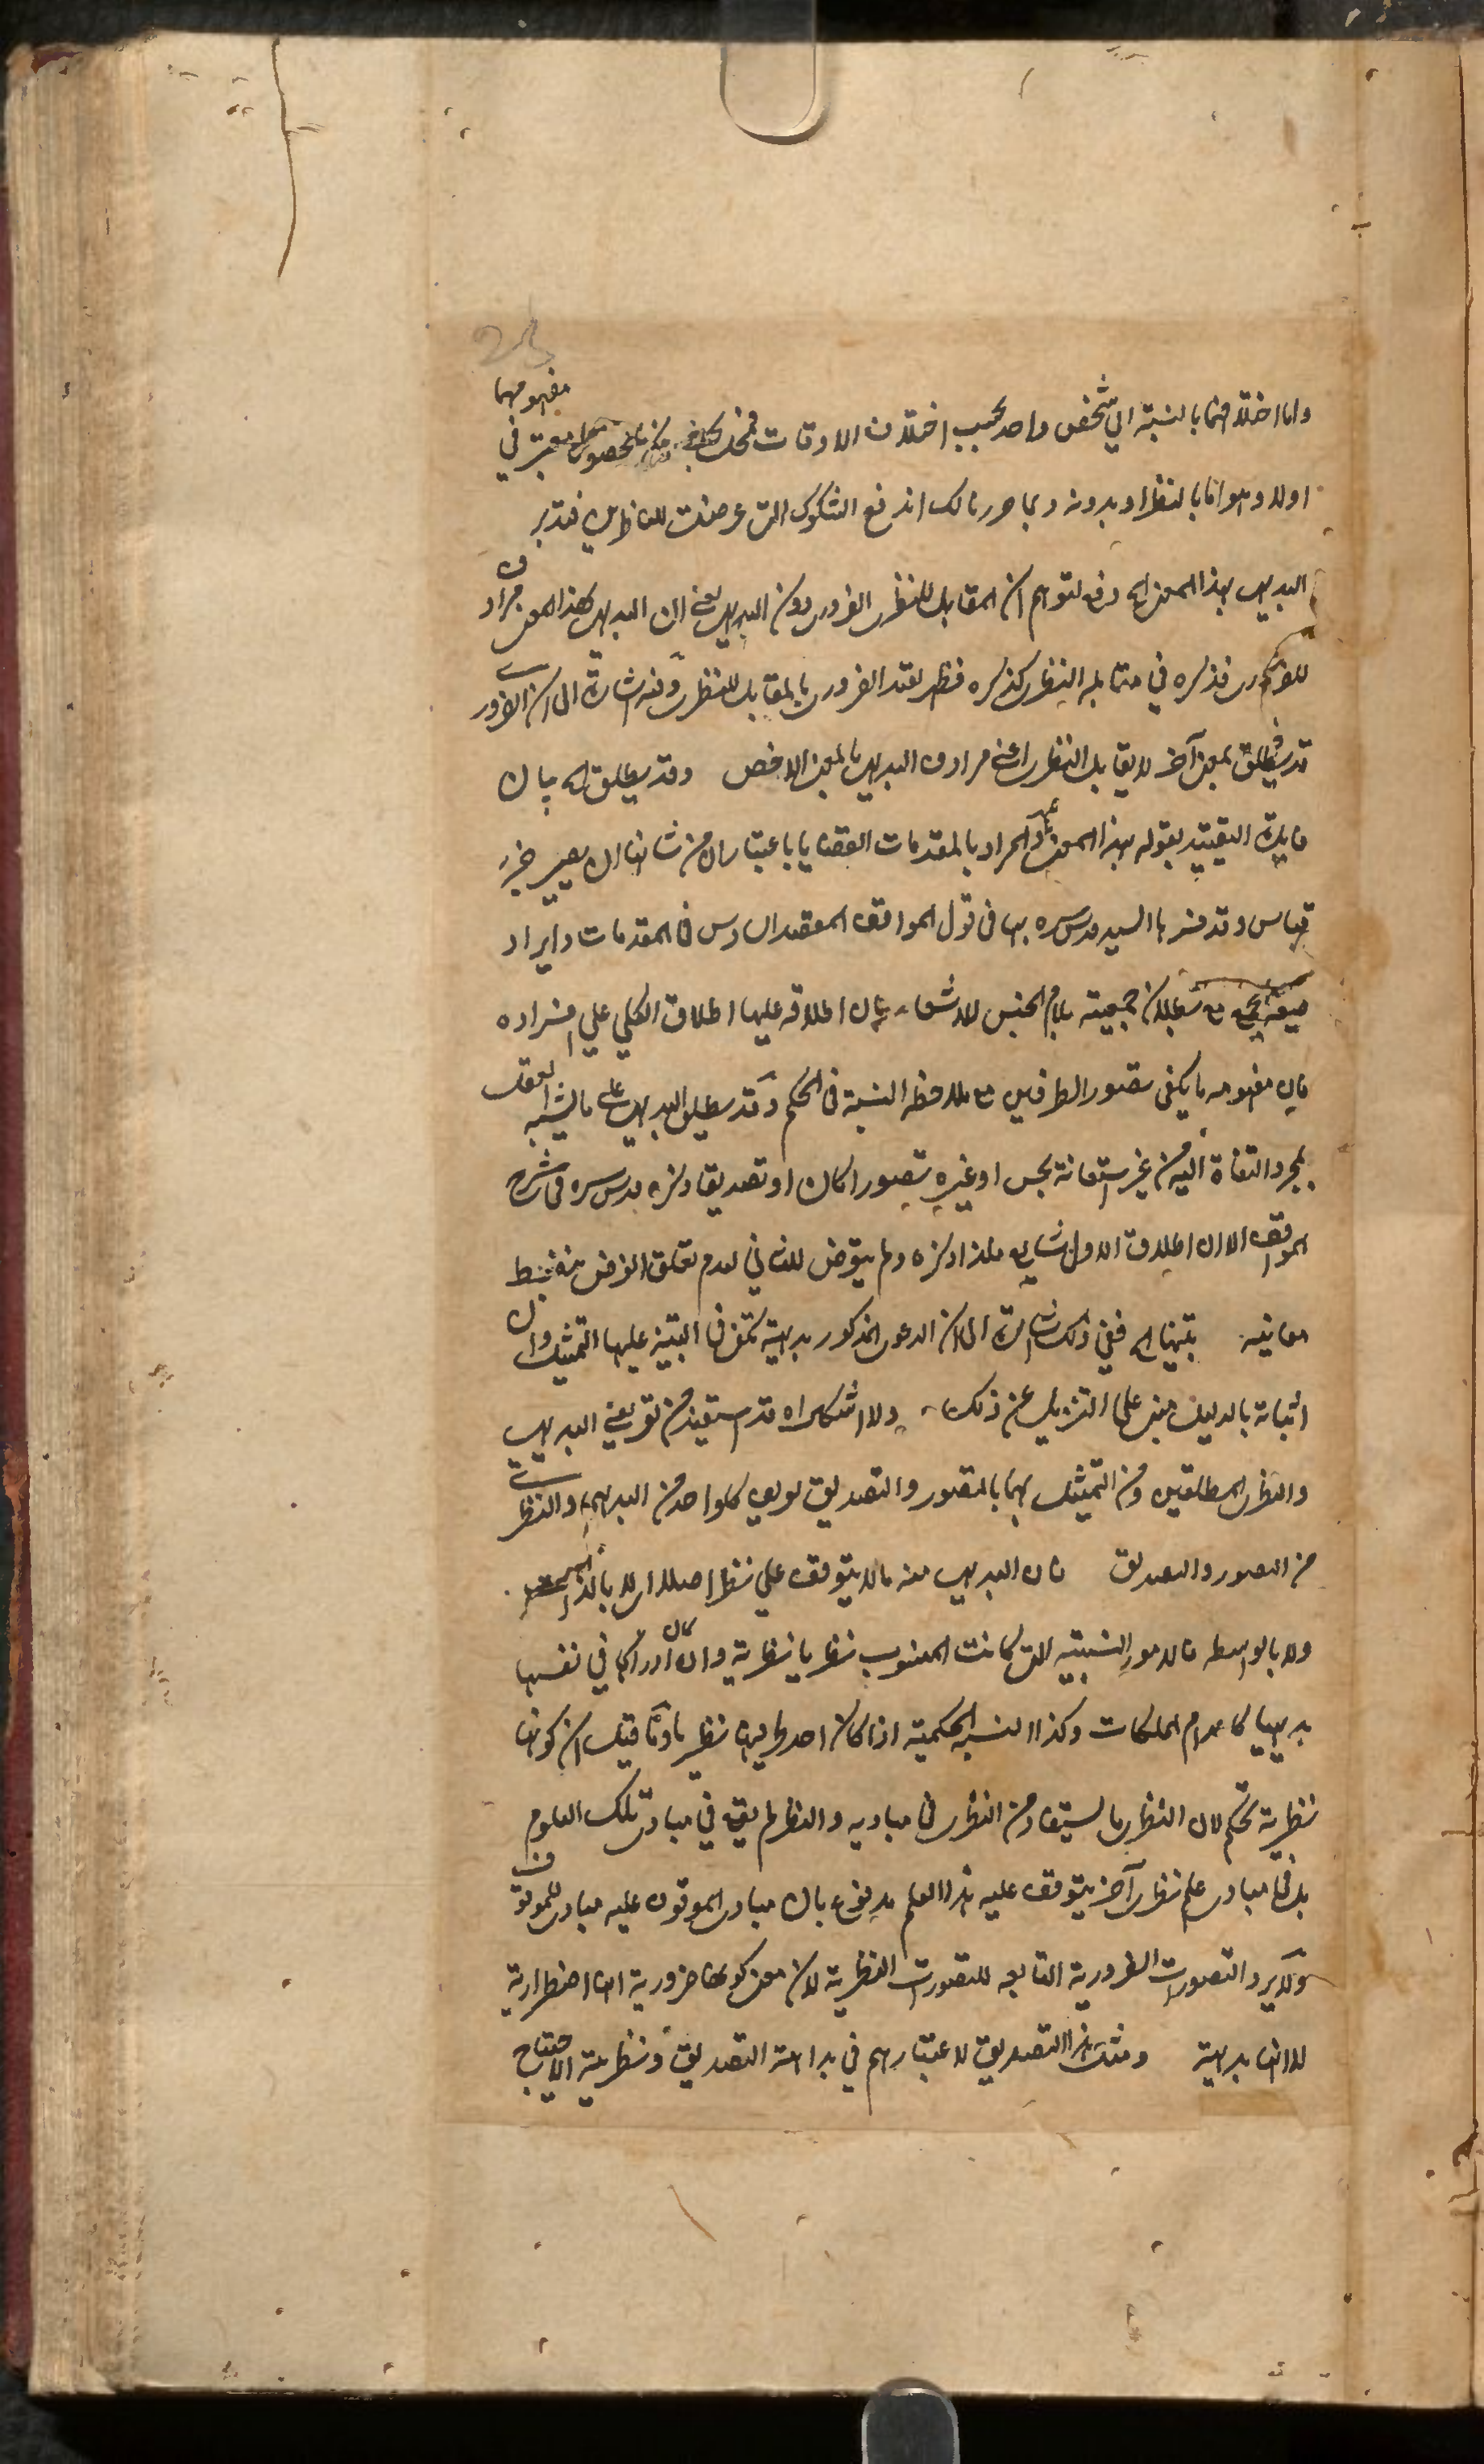 واما اختلافهما بالنسبة الي شخص واحد بحسب اختلاف الاوقات معتبر في مفهومهما
اولا وهو انها بالنظر او بدونه وبما حررنا لك اندفع الشكوك التي عرضت للناظرين فتدبر
البديهي بهذا المعنى اه دفع لتوهم ان المقابل للنظري الضروري دون البديهي يعني ان البديهي بهذا المعنى مرادف
للضروري فذكره في مقابلة النظري كذكره فظهر تقييد الضروري بالمقابل للنظري وفيه اشارة الى ان الضروري
قد يطلق بمعنى آخر لا يقابل النظري اعني مرادف البديهي بالمعنى الاخص وقد يطلق اه بيان
فايدة التقييد بقوله بهذا المعنى والمراد بالمقدمات القضايا باعتبار ان من شانها ان يصير جزء
قياس وقد فسرها السيد قدس سره بها في قول المواقف المقصد السادس في المقدمات وايراد
صيغة الجمع مع بطلان جمعيته بلام الجنس للاشعار بان اطلاقه عليها اطلاق الكلي علي افراده
فان مفهومه ما يكفي تصور الطرفين مع ملاحظة النسبة في الحكم وقد يطلق البديهي على ما يثبته العقل
بمجرد التفاته اليه من غير استعانة بحس او غيره تصورا كان او تصديقا ذكره قدس سره في شرح
المواقف الا ان اطلاق الاول شايع فلذا ذكره ولم يتعرض للثاني لعدم تعلق الغرض بضبط
معانيه تنبيها اه ففي ذلك اشارة الى ان الدعوى المذكور بديهية يكفي في التنبيه عليها التمثيل وان
اثباته بالدليل مبني على التنزيل عن ذلك ولا شك اه قد استفيد من تعريفي البديهي
والنظري المطلقين ومن التمثيل بهما بالتصور والتصديق تعريف كل واحد من البديهي والنظري
من التصور والتصديق فان البديهي منه ما لا يتوقف علي نظر اصلا اى لا بالذات
ولا بالواسطة فالامور النسبية التي كانت المنسوب نظريا نظرية وان كان ادراكها في نفسها
بديهيا كاعدام الملكات وكذا النسبة الحكمية اذا كان احد طرفيها نظريا وما قيل ان كونها
نظرية تحكم لان النظري ما يستفاد من النظر في مباديه والنظر لم يقع في مبادي تلك العلوم
بل في مبادي علم نظري آخر يتوقف عليه هذا العلم مدفوع بان مبادى الموقوف عليه مبادى للموقوف
ولا يرد التصورات الضرورية التابعة للتصورات النظرية لان معنى كونها ضرورية انها اضطرارية
لا انها بديهية ومثل هذا التصديق لاعتبارهم في بداهة التصديق ونظريته الاحتياج